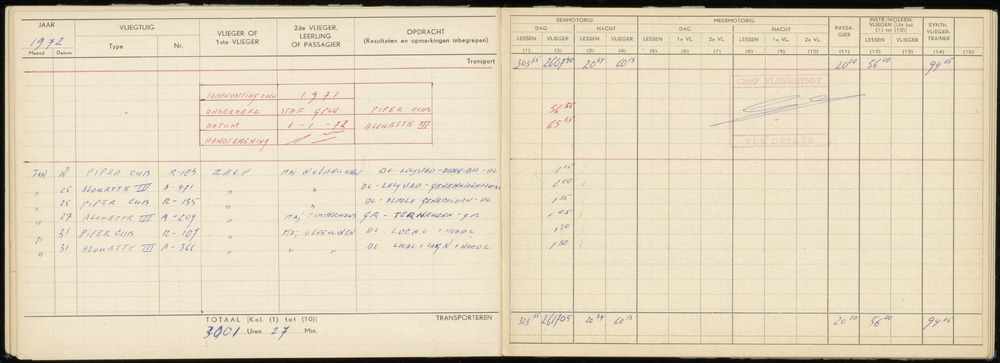 JAAR
1972
Maand Datum
VLIEGTUIG
Type Nr.
VLIEGER OF
1ste VLIEGER
2de VLIEGER,
LEERLING
OF PASSAGIER
OPDRACHT
(Resultaten en opmerkingen inbegrepen)
Transport
SAMENVATTING OVER 1971
ONDERDEEL STAF GPLV PIPER CUB
DATUM 1-1-72 ALOUETTE III
HANDTEKENING
JAN 18 PIPER CUB R-183 ZELF MAJ DL-LELYSTAD- -DL
" 25 ALOUETTE III A-471 " " DL-LELYSTAD-
" 26 PIPER CUB R-135 " " DL-ALMELO -DL
" 27 ALOUETTE III A-209 " MAJ TIMMERMANS GR-TERHEUZEN-GR
" 31 PIPER CUB R-107 " MAJ DL LOCAL +
" 31 ALOUETTE III A-366 " " DL LOCAL +
TOTAAL [Kol. (1) tot (10)]
3001 Uren 27 Min.
TRANSPORTEREN
EENMOTORIG
MEERMOTORIG
DAG NACHT DAG NACHT
LESSEN VLIEGER LESSEN VLIEGER LESSEN 1e VL. 2e VL. LESSEN 1e VL. 2e VL.
PASSA-
GIER
INSTR./WOLKEN-
VLIEGEN (Uit kol.
(1) tot (10))
LESSEN VLIEGER
SYNTH.
VLIEGER-
TRAINER
(1) (2) (3) (4) (5) (6) (7) (8) (9) (10) (11) (12) (13) (14) (15)
303 55 2607 40 20 34 60 13 20 10 56 20 94 05
CHEF VLIEGDIENST
56 50
65 35
VLB DEELEN
1 05
2 00
1 35
1 25
1 30
1 50
303 55 2617 05 20 34 60 13 20 10 56 20 94 05